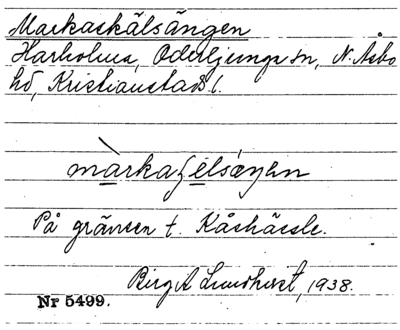 Markaskälsängen
Harholma, Oderljunga sn, N. Åsbo
hd, Kristianstads l.
màrkaʃelsæŋən
På gränsen t. Kåshässle.
Birgit Lundkvist, 1938.
Nr 5499.